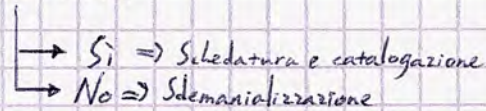 → Sì => Schedatura e catalogazione
→ No => Sdemanializzazione